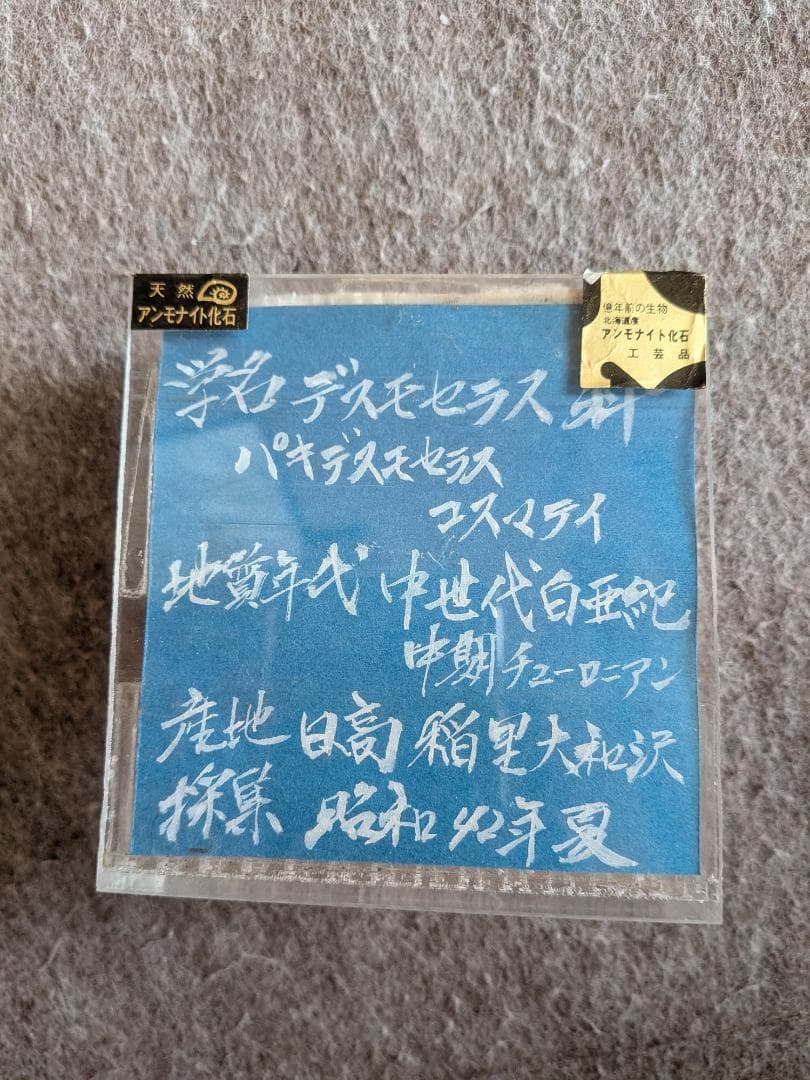 天然
アンモナイト化石
億年前の生物
北海道産
アンモナイト化石
工芸品
学名 デスモセラス科
パキデスモセラス
コスマテイ
地質年代 中世代白亜紀
中期チューロニアン
産地 日高 稲里大和沢
採集 昭和42年夏